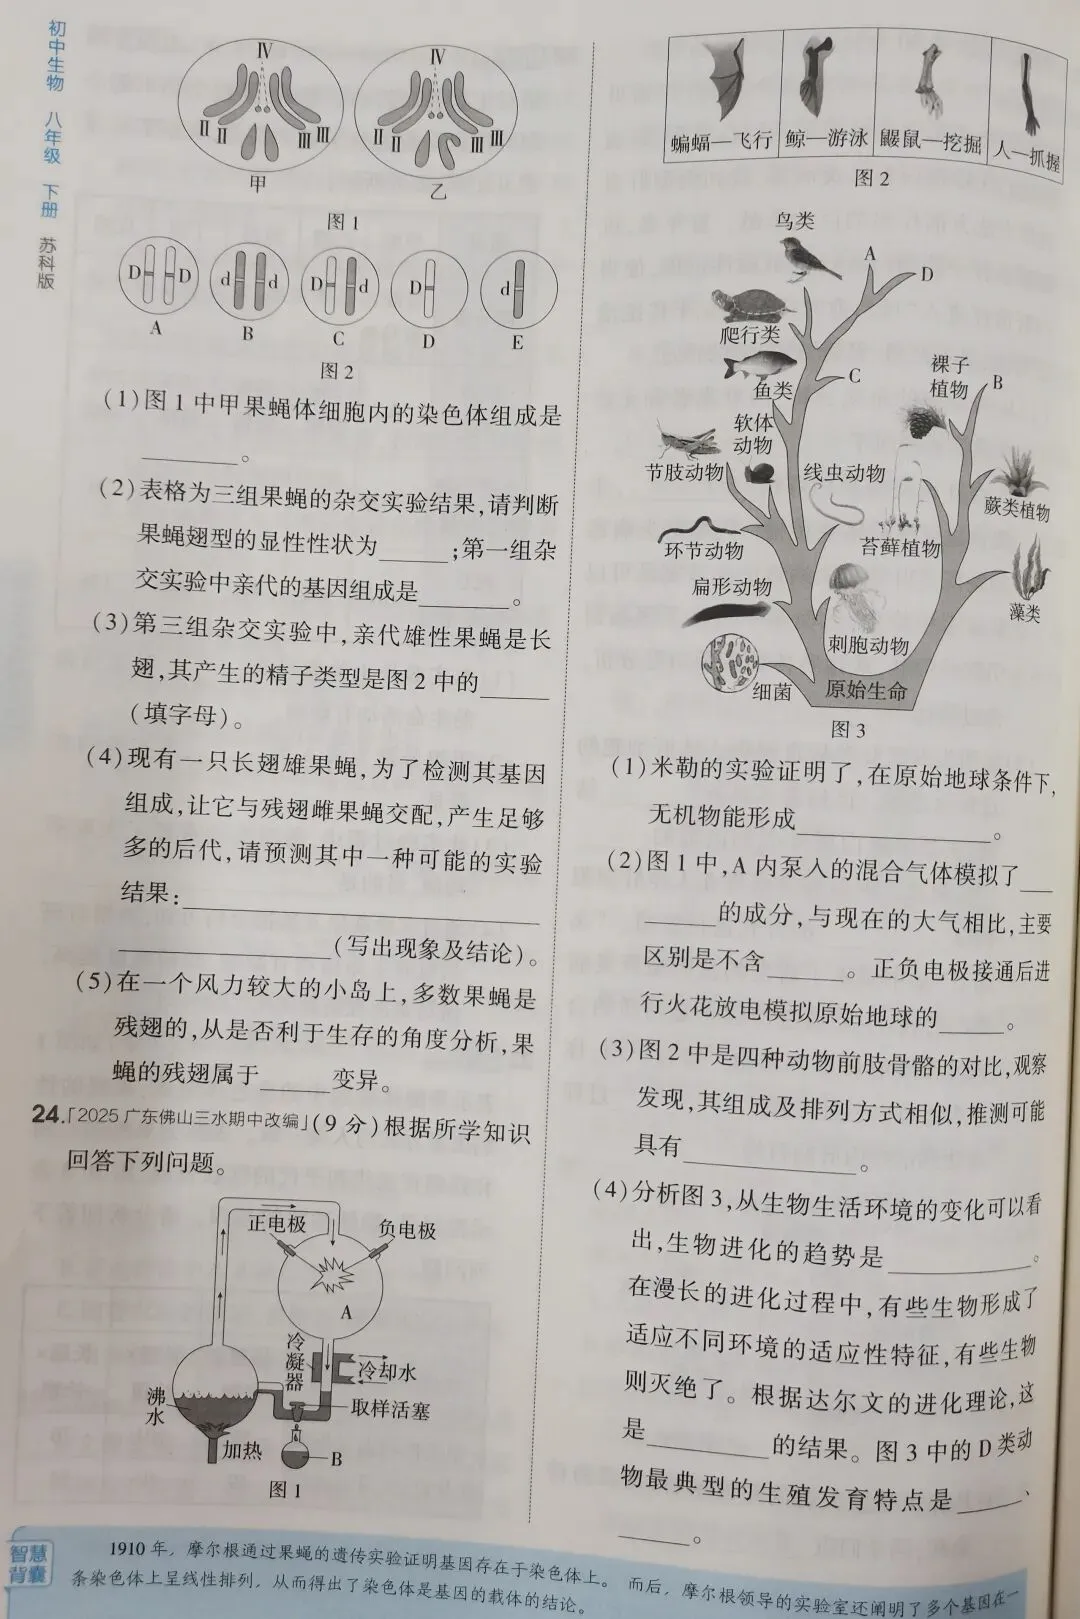 初中生物 八年级 下册 苏科版
Ⅳ
Ⅱ Ⅱ Ⅲ Ⅲ
甲
Ⅳ
Ⅱ Ⅱ Ⅲ Ⅲ
乙
图1
D D
A
d d
B
D d
C
D
D
d
E
图2
(1)图1中甲果蝇体细胞内的染色体组成是
________。
(2)表格为三组果蝇的杂交实验结果,请判断
果蝇翅型的显性性状为______;第一组杂
交实验中亲代的基因组成是________。
(3)第三组杂交实验中,亲代雄性果蝇是长
翅,其产生的精子类型是图2中的______
(填字母)。
(4)现有一只长翅雄果蝇,为了检测其基因
组成,让它与残翅雌果蝇交配,产生足够
多的后代,请预测其中一种可能的实验
结果:______________________________
__________________(写出现象及结论)。
(5)在一个风力较大的小岛上,多数果蝇是
残翅的,从是否利于生存的角度分析,果
蝇的残翅属于______变异。
24.「2025广东佛山三水期中改编」(9分)根据所学知识
回答下列问题。
正电极
负电极
A
冷凝器
冷却水
沸水
取样活塞
加热
B
图1
蝙蝠—飞行 鲸—游泳 鼹鼠—挖掘 人—抓握
图2
鸟类
A
D
爬行类
裸子植物
B
C
鱼类
软体动物
节肢动物
线虫动物
蕨类植物
环节动物
苔藓植物
扁形动物
藻类
刺胞动物
细菌
原始生命
图3
(1)米勒的实验证明了,在原始地球条件下,
无机物能形成________________。
(2)图1中,A内泵入的混合气体模拟了___
______的成分,与现在的大气相比,主要
区别是不含______。正负电极接通后进
行火花放电模拟原始地球的_____。
(3)图2中是四种动物前肢骨骼的对比,观察
发现,其组成及排列方式相似,推测可能
具有______________。
(4)分析图3,从生物生活环境的变化可以看
出,生物进化的趋势是____________。
在漫长的进化过程中,有些生物形成了
适应不同环境的适应性特征,有些生物
则灭绝了。根据达尔文的进化理论,这
是__________的结果。图3中的D类动
物最典型的生殖发育特点是_____、
______。
智慧背囊
1910年,摩尔根通过果蝇的遗传实验证明基因存在于染色体上。而后,摩尔根领导的实验室还阐明了多个基因在一
条染色体上呈线性排列,从而得出了染色体是基因的载体的结论。